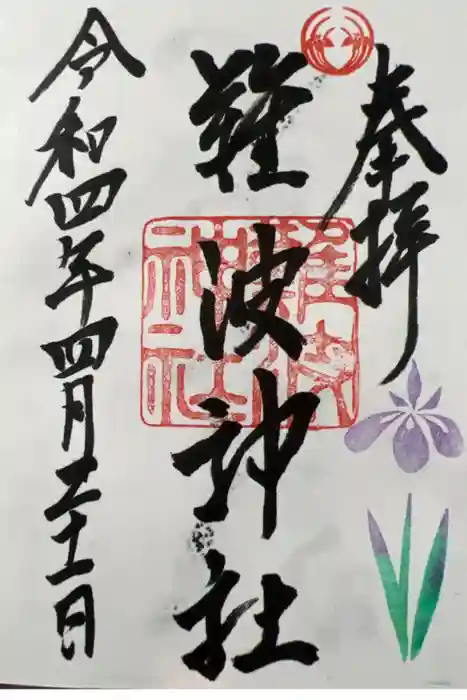 奉拝
難波神社
令和四年四月二十一日
難波
神社